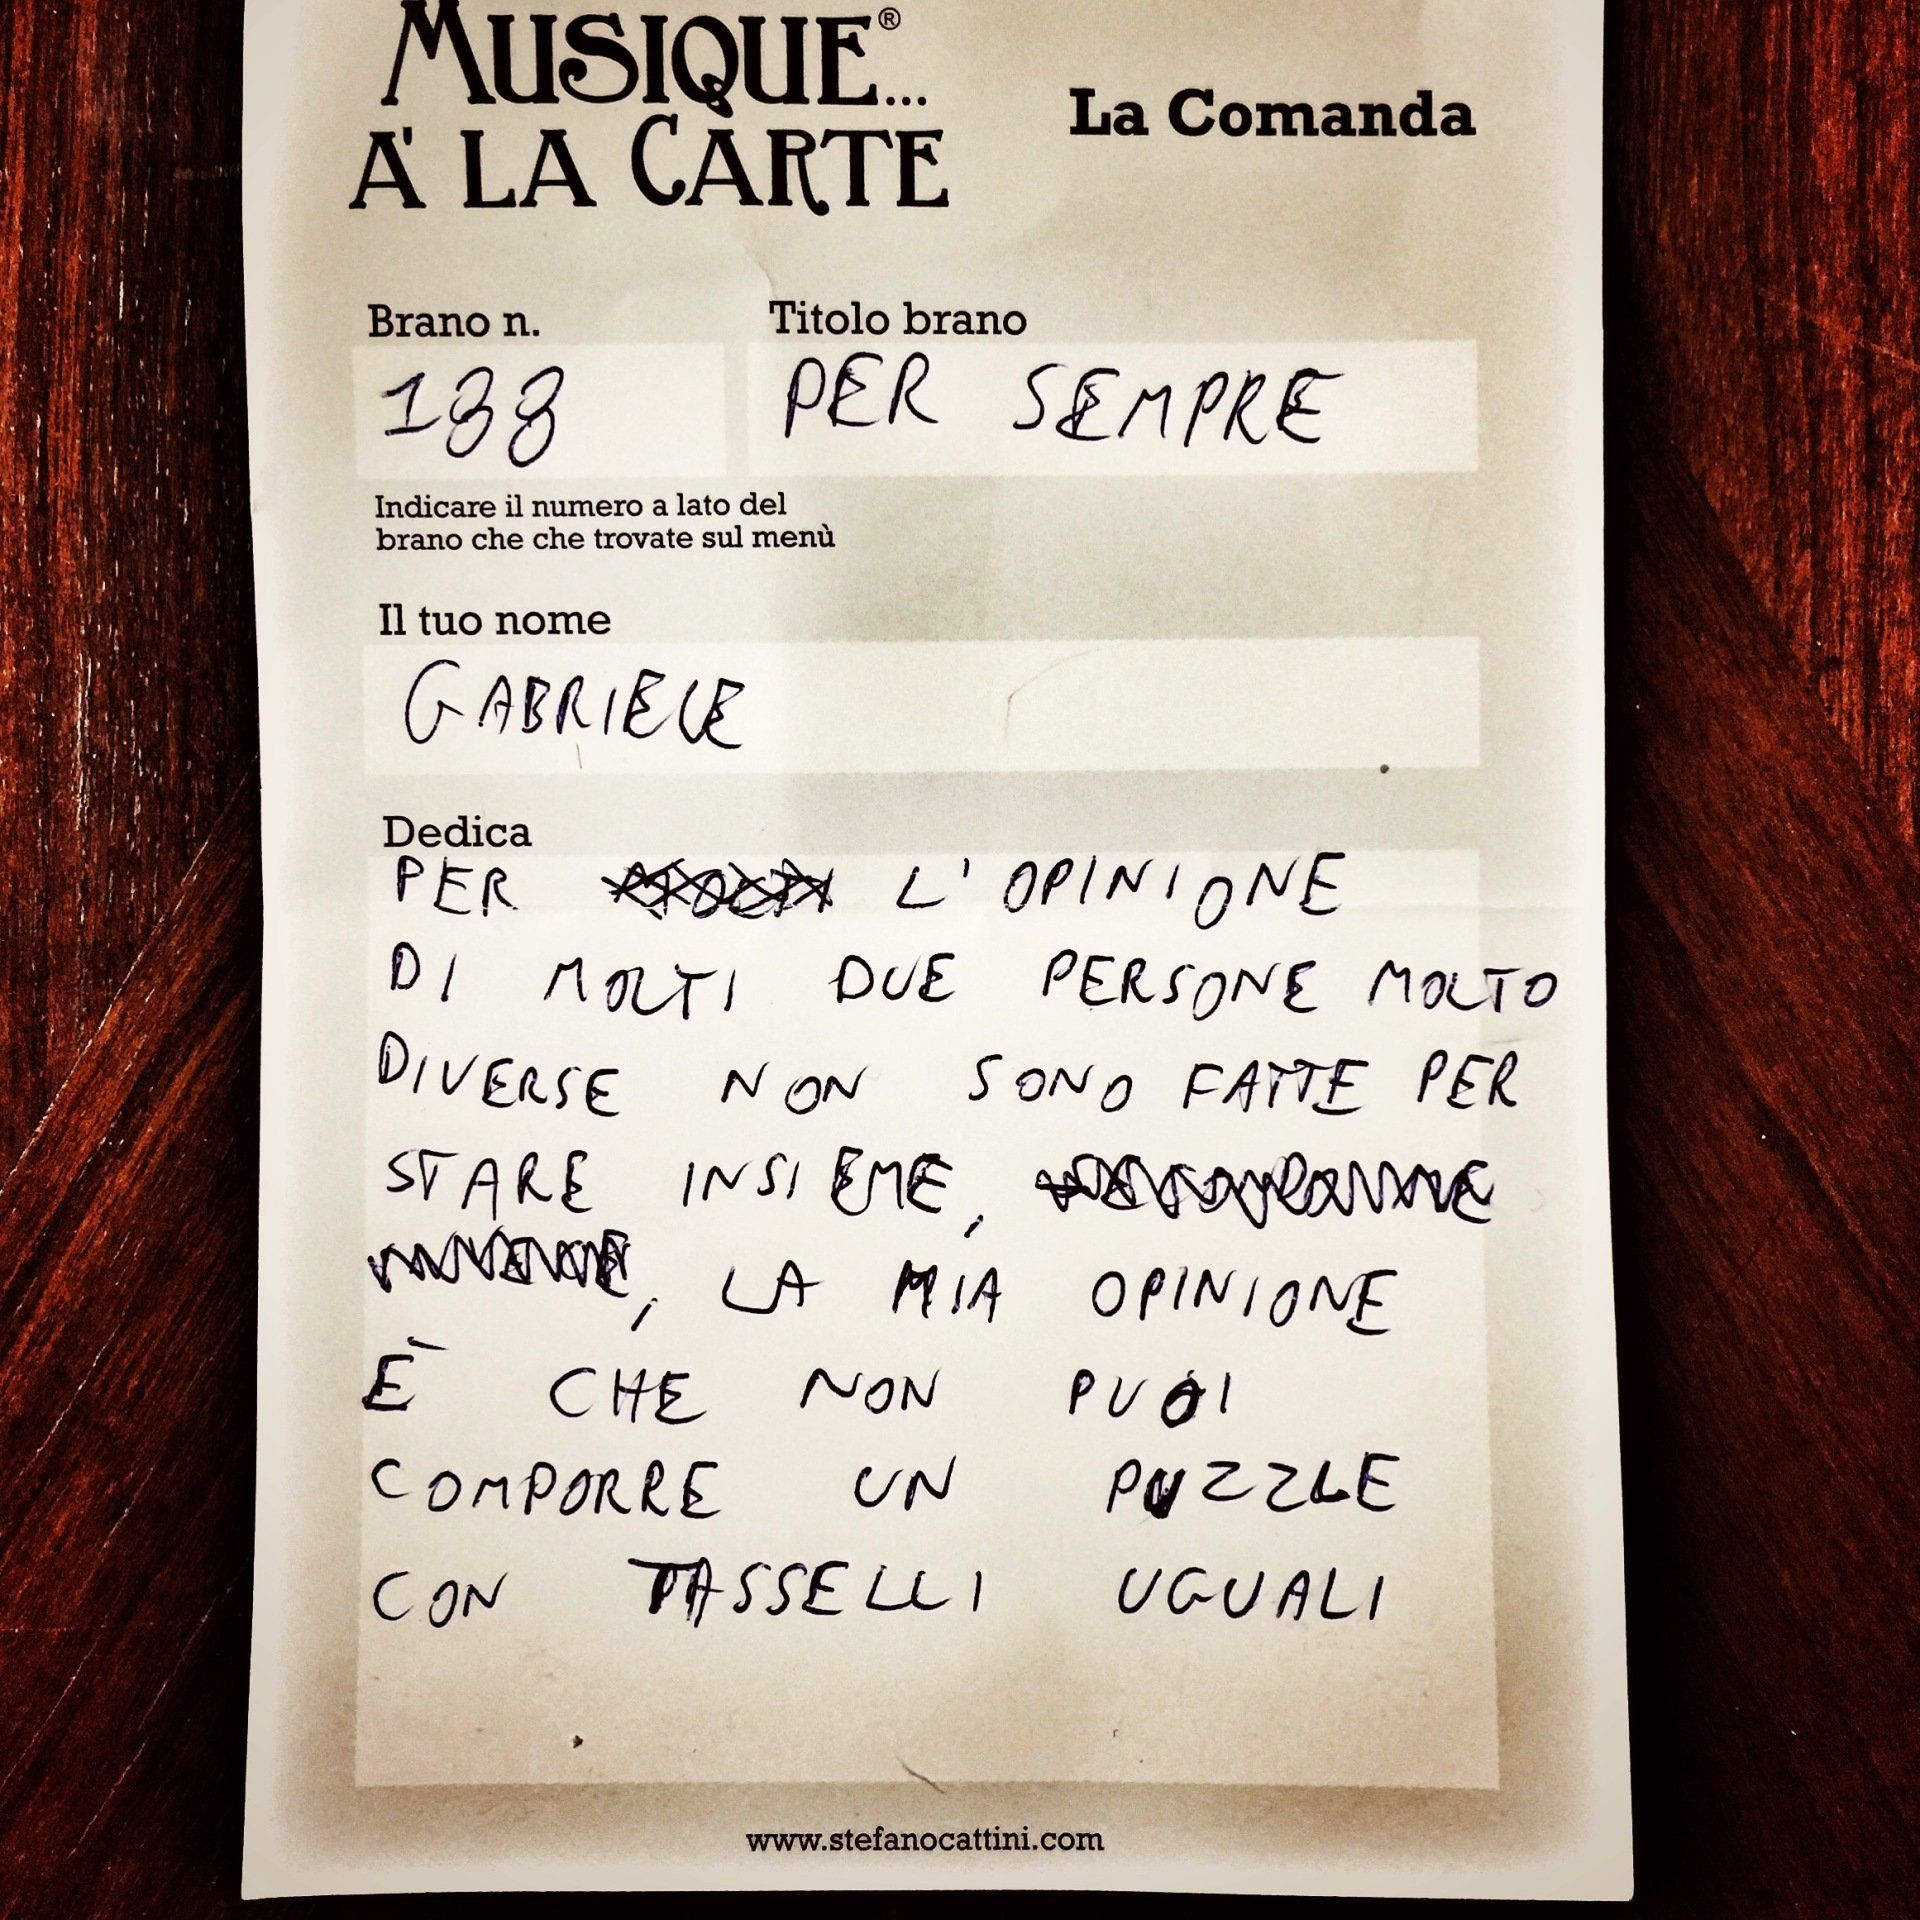 MUSIQUE®...
À LA CARTE
La Comanda
Brano n.
Titolo brano
188
PER SEMPRE
Indicare il numero a lato del
brano che che trovate sul menù
Il tuo nome
GABRIELE
Dedica
PER L'OPINIONE
DI MOLTI DUE PERSONE MOLTO
DIVERSE NON SONO FATTE PER
STARE INSIEME,
, LA MIA OPINIONE
È CHE NON PUOI
COMPORRE UN PUZZLE
CON TASSELLI UGUALI
www.stefanocattini.com